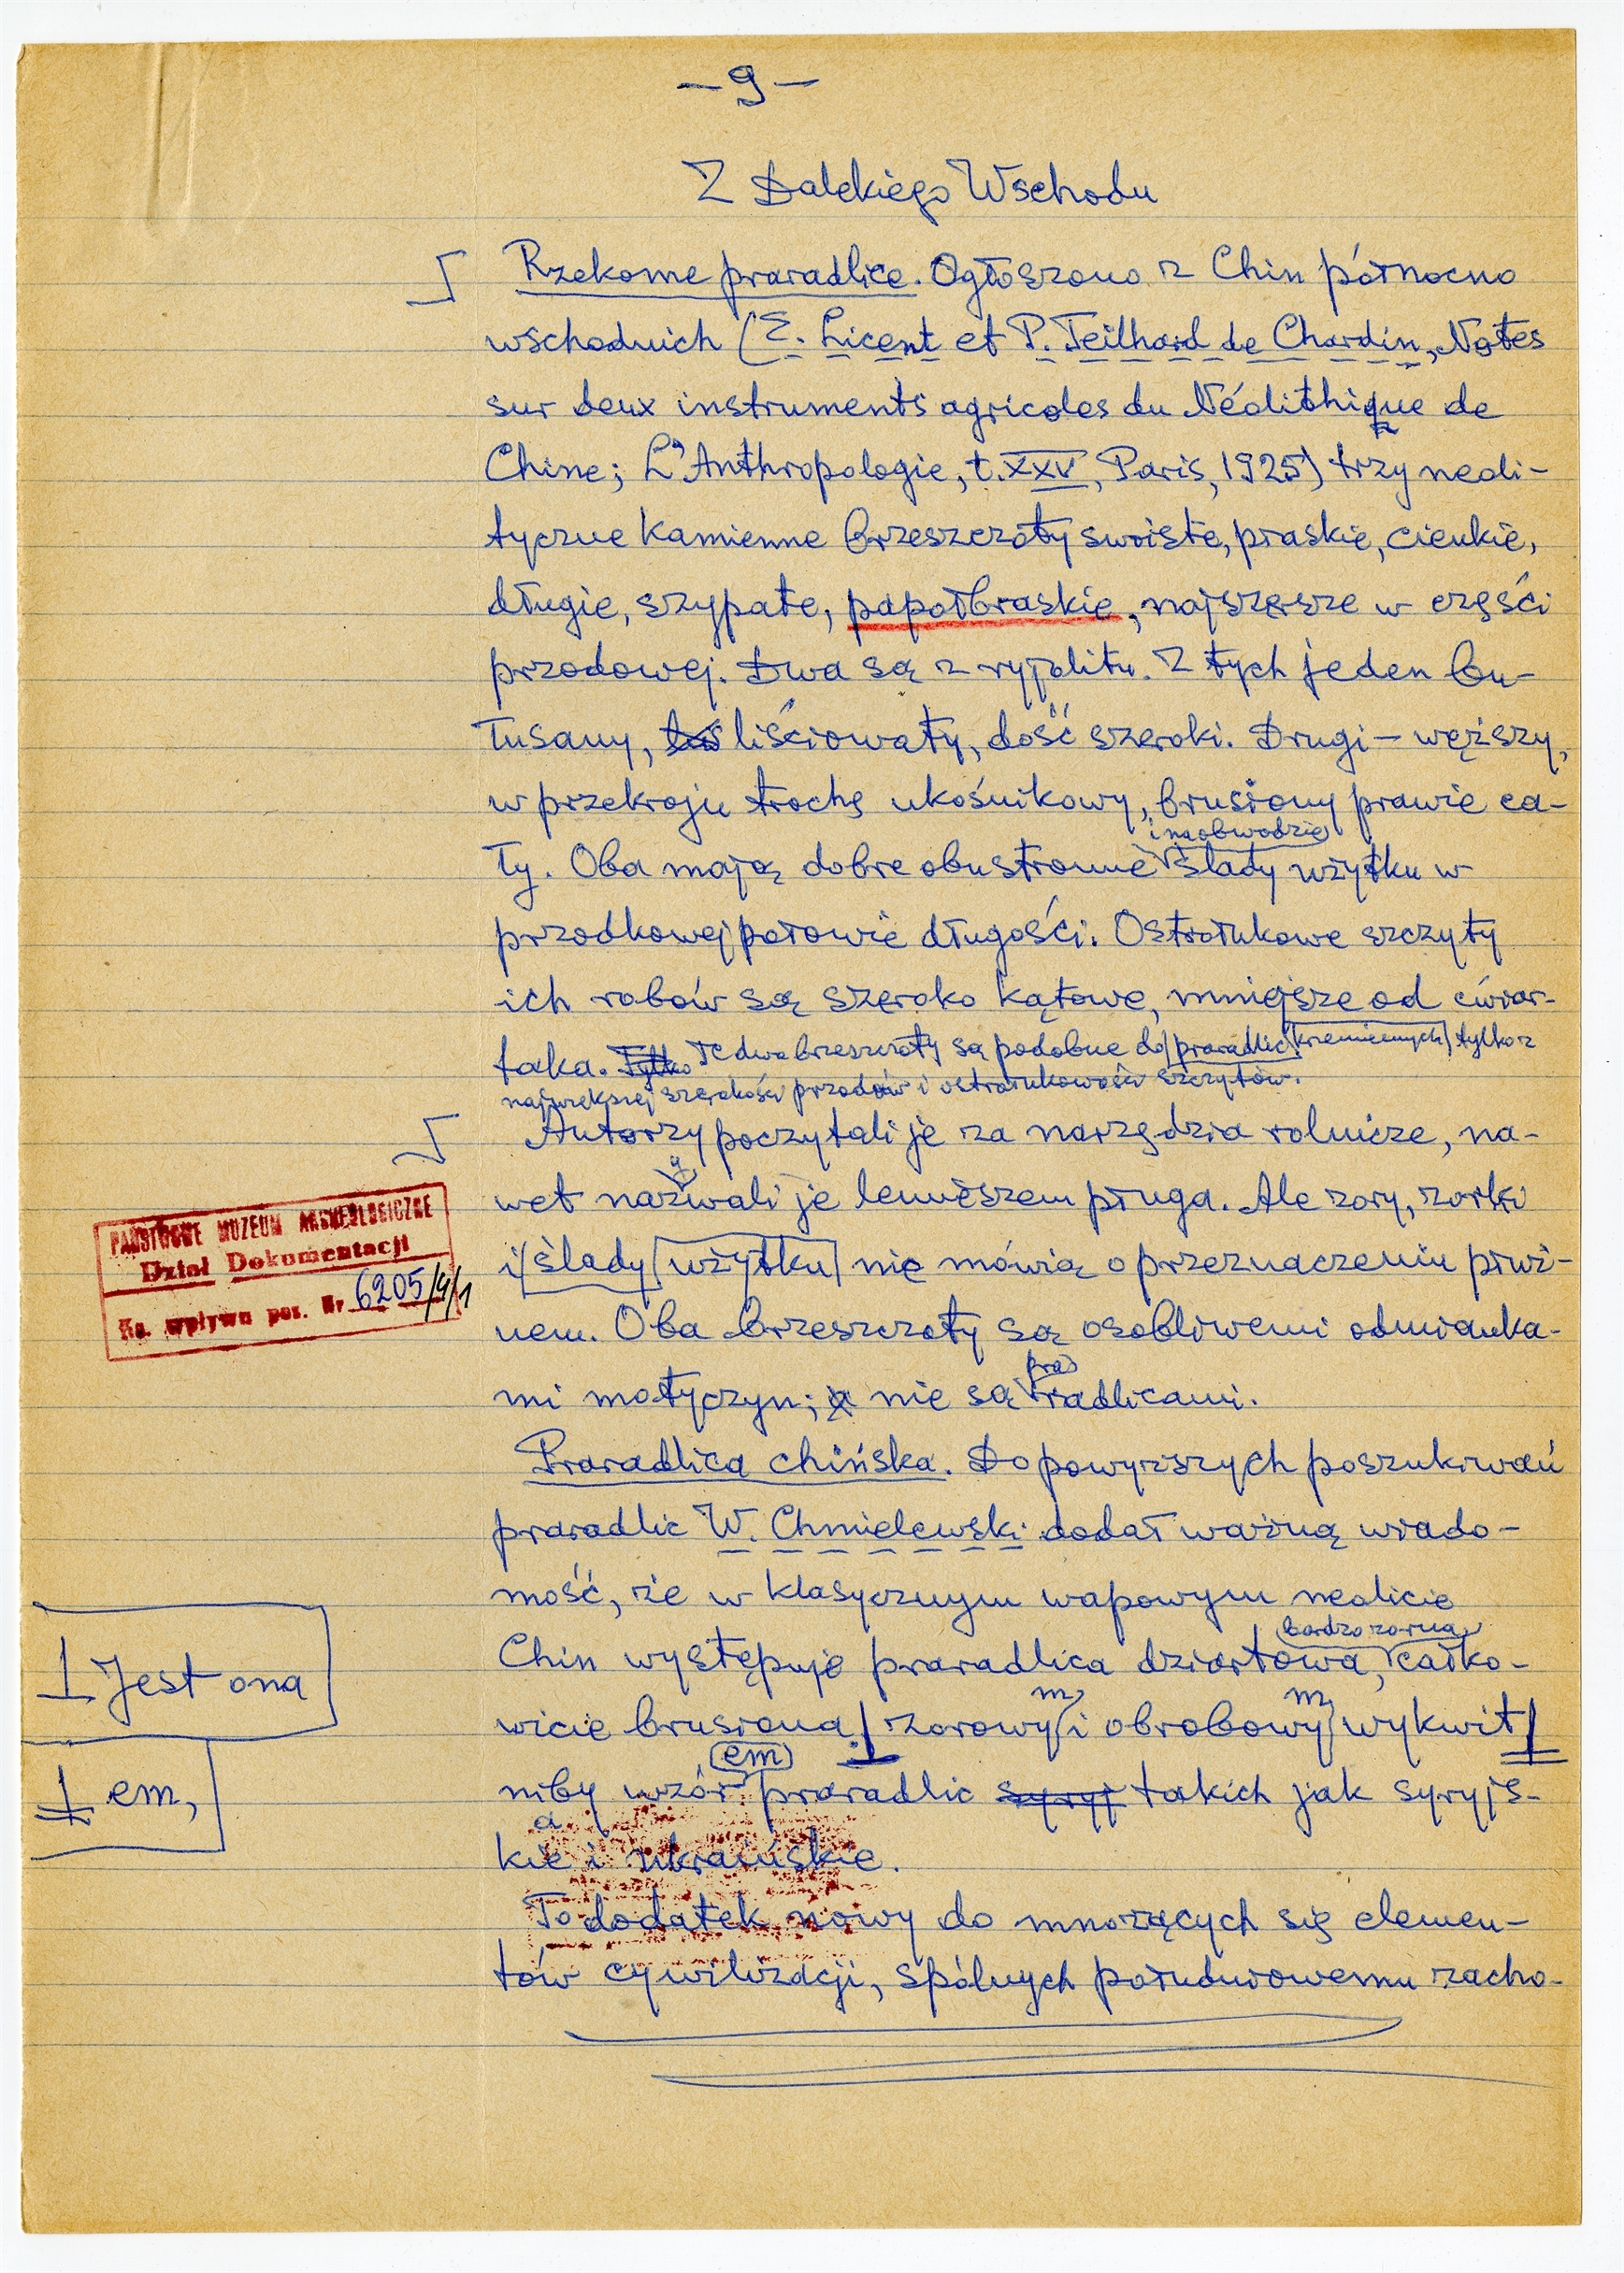 — 9 —
Z Dalekiego Wschodu
Rzekome praradlice. Ogłoszono z Chin północno
wschodnich (E. Licent et P. Teilhard de Chardin, Notes
sur deux instruments agricoles du Néolithique de
Chine; L'Anthropologie, t. XXV, Paris, 1925) trzy neoli-
tyczne kamienne brzeszczoty swoiste, płaskie, cienkie,
długie, szypate, papołbraskie, najszersze w części
przodowej. Dwa są z ryjolitu. Z tych jeden bu-
łusany, liściowaty, dość szeroki. Drugi — węższy,
w przekroju trochę ukośnikowy, brusiony prawie ca-
i na obwodzie
ły. Oba mają dobre obustronne ślady użytku w
przodkowej połowie długości. Ostrołukowe szczyty
ich robów są szeroko kątowe, mniejsze od ćwiar-
taka. Tylko Te dwa brzeszczoty są podobne do praradlic krzemiennych tylko z
największej szerokości przodów i ostrołukowości szczytów.
Autorzy poczytali je za narzędzia rolnicze, na-
wet nazywali je lemieszem pługa. Ale zory, zorki
i ślady użytku nie mówią o przeznaczeniu płwi-
nem. Oba brzeszczoty są osobliwemi odmianka-
pra
mi motyczyn; a nie są radlicami.
Praradlica chińska. Do powyższych poszukiwań
praradlic W. Chmielewski dodał ważną wiado-
mość, że w klasycznym wapowym neolicie
bardzo zorna
Chin występuje praradlica dziartowa, całko-
m m
wicie brusiona zorowy i obrobowy wykwit
em
niby wzór praradlic syryj takich jak syryjs-
a
kie i ukraińskie.
To dodatek nowy do mnożących się elemen-
tów cywilizacji, spólnych południowemu zacho-
PAŃSTWOWE MUZEUM ARCHEOLOGICZNE
Dział Dokumentacji
Ks. wpływu poz. Nr 6205/4/1
Jest ona
em,